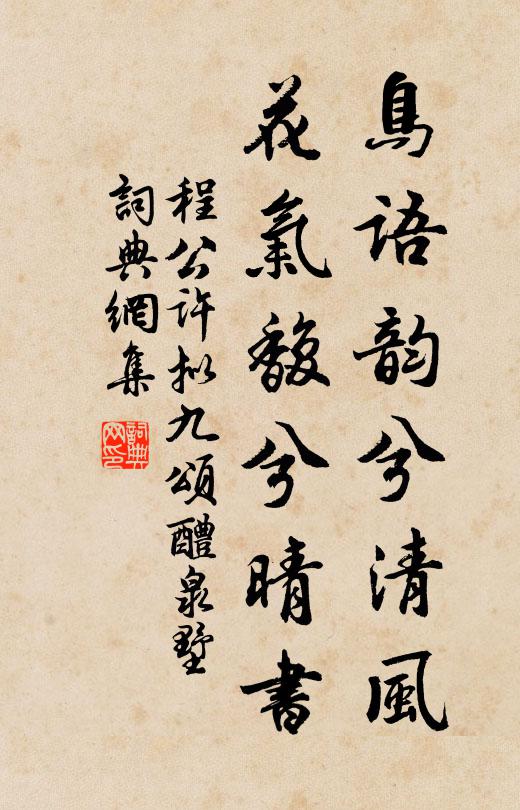 鳥語韵兮清風
花氣馥兮晴書
程公许拟九頌醴泉墅
詞典網集
詞典网印